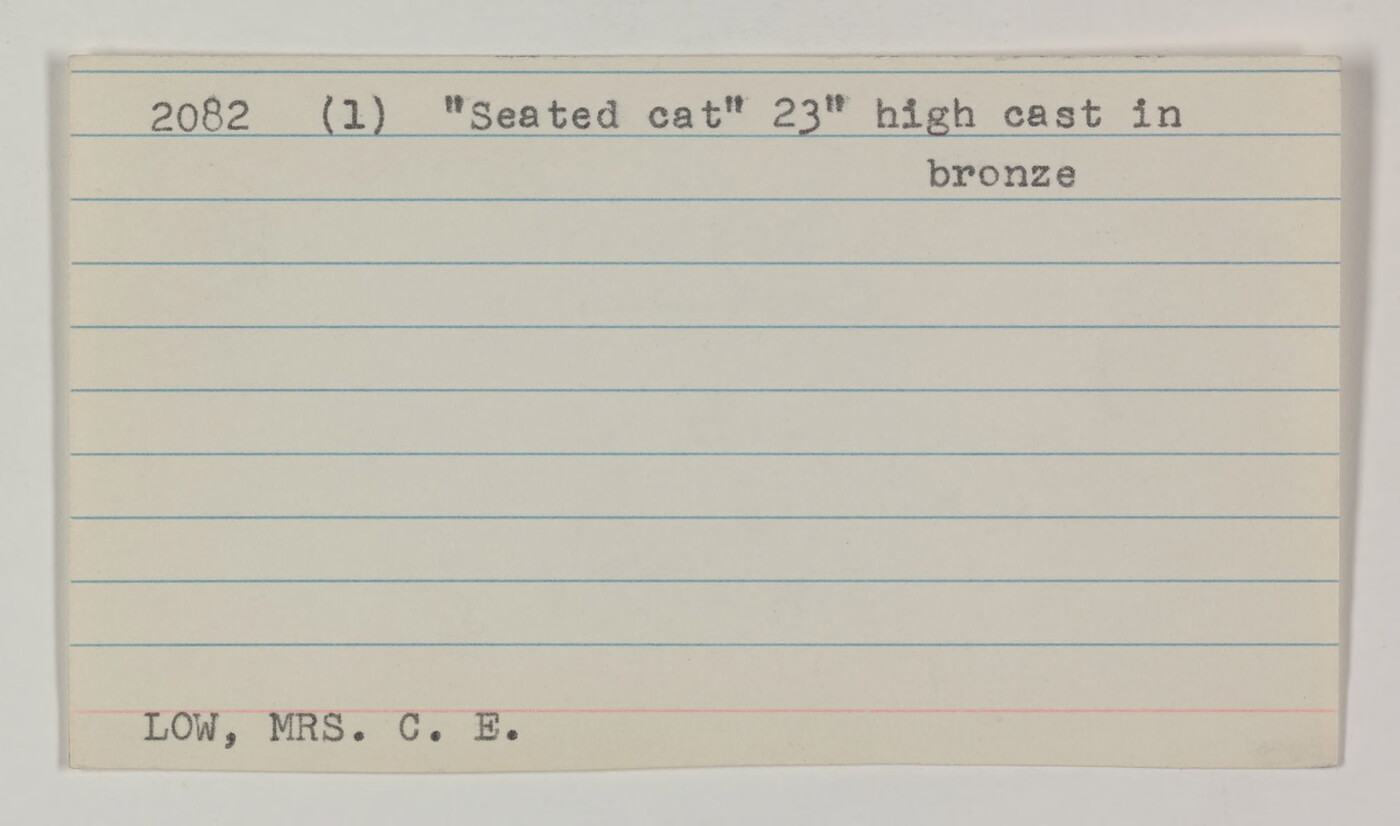 2082 (1) "Seated cat" 23" high cast in
bronze
LOW, MRS. C. E.